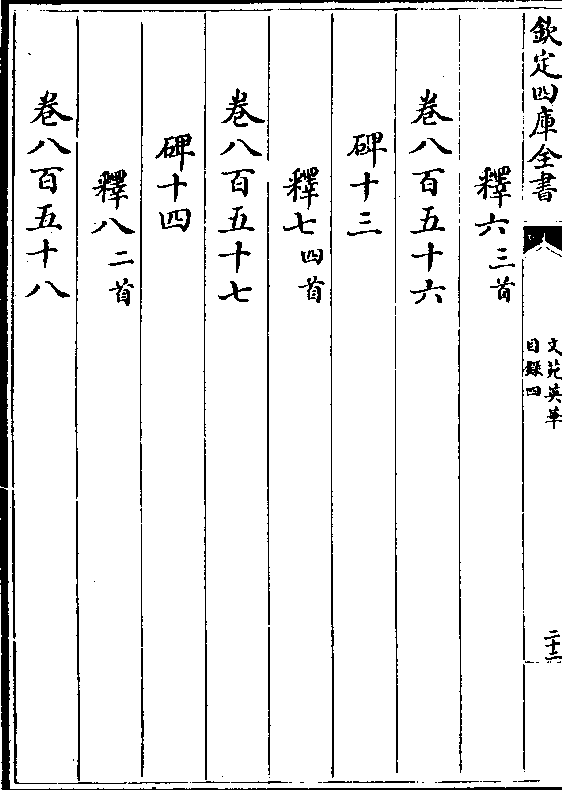 欽定四庫全書
文苑英華
目錄四
二十二
釋六三首
卷八百五十六
碑十三
釋七四首
卷八百五十七
碑十四
釋八二首
卷八百五十八